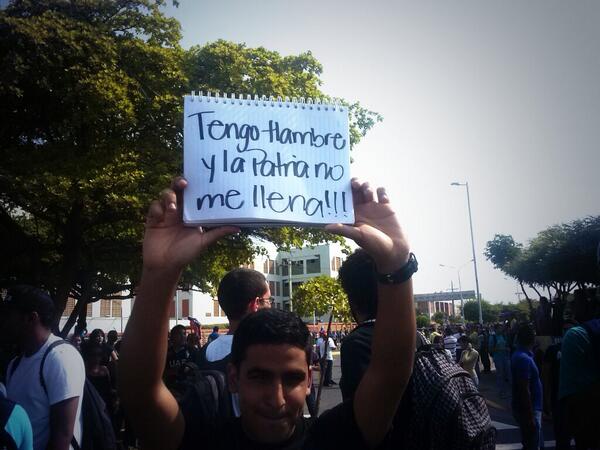 Tengo Hambre
y la Patria no
me llena!!!